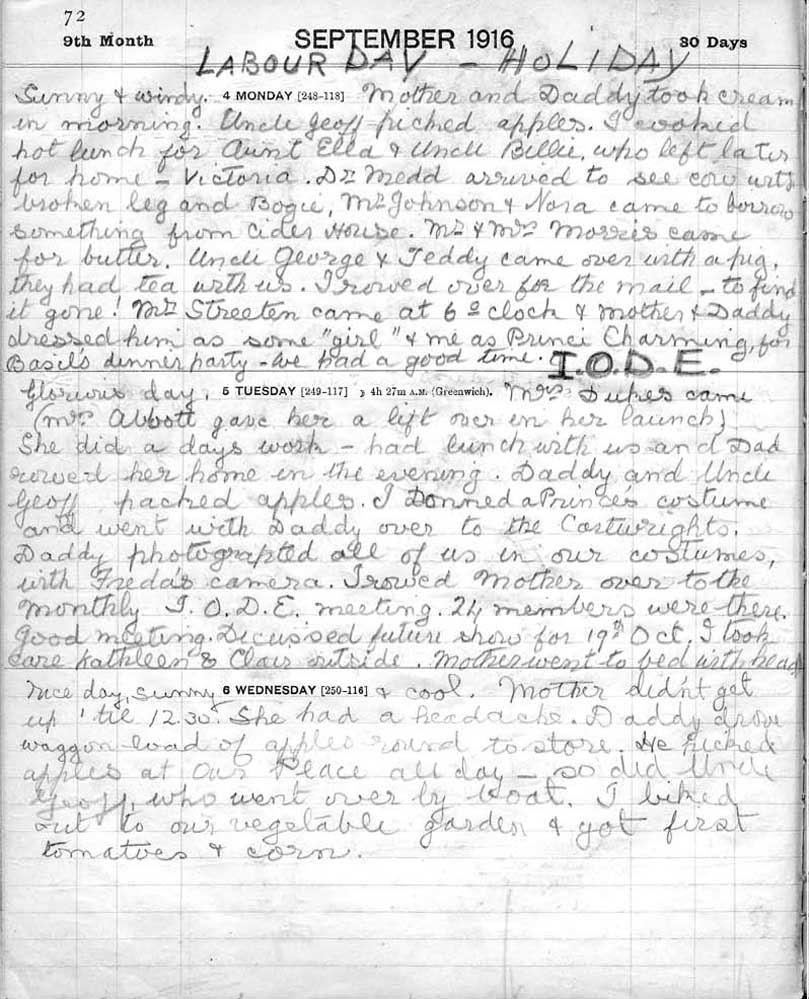 72
9th Month SEPTEMBER 1916 30 Days
LABOUR DAY - HOLIDAY
Sunny & windy. 4 MONDAY [248-118] Mother and Daddy took cream
in morning. Uncle Geoff picked apples. I cooked
hot lunch for Aunt Ella & Uncle Billie, who left later
for home - Victoria. Dr Medd arrived to see cow with
broken leg and Bogie, Mr Johnson & Nora came to borrow
something from Cider House. Mr & Mrs Morris came
for butter. Uncle George & Teddy came over with a pig,
they had tea with us. I rowed over for the mail - to find
it gone! Mr Streeten came at 6 o clock & Mother & Daddy
dressed him as some "girl" & me as Prince Charming, for
Basil's dinner party - we had a good time. I.O.D.E.
Glorious day. 5 TUESDAY [249-117] ☽ 4h 27m A.M. (Greenwich). Mrs Dukes came
(Mrs Abbott gave her a lift over in her launch)
She did a days work - had lunch with us and Dad
rowed her home in the evening. Daddy and Uncle
Geoff packed apples. I Donned a Princes costume
and went with Daddy over to the Cartwrights.
Daddy photograpted all of us in our costumes,
with Freda's camera. I rowed Mother over to the
monthly I.O.D.E. meeting. 24 members were there.
Good meeting. Dicussed future show for 19th Oct. I took
care Kathleen & Clair outside. Mother went to bed with head
Nice day, sunny 6 WEDNESDAY [250-116] & cool. Mother didn't get
up 'til 12.30. She had a headache. Daddy drove
waggon load of apples round to store. He picked
apples at Our Place all day - so did Uncle
Geoff, who went over by boat. I biked
out to our vegetable garden & got first
tomatoes & corn.